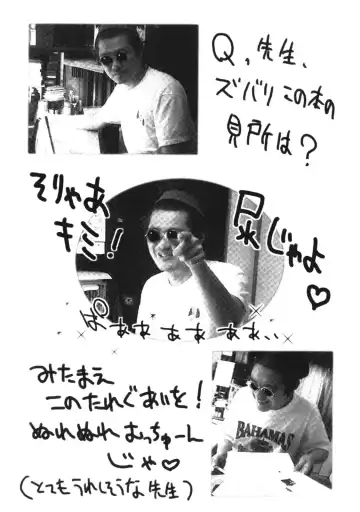 Q、先生、
ズバリこの本の
見所は?
そりゃあ
キミ!
尿じゃよ♡
ぱぁぁぁぁぁぁぁ…
みたまえ
このたれぐあいを!
ぬれぬれむっちゅーん
じゃ♡
(とてもうれしそうな先生)
BAHAMAS